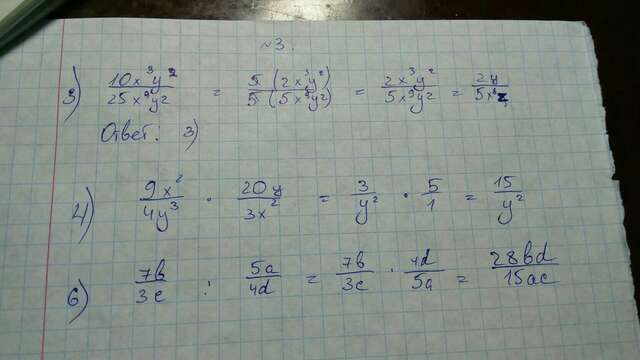 №3.
3) 10x³y² / 25x⁹yz = 5(2x³y²) / 5(5x⁹yz) = 2x³y² / 5x⁹yz = 2y / 5x⁶z
Ответ: 3)
4) 9x² / 4y³ · 20y / 3x² = 3 / y² · 5 / 1 = 15 / y²
6) 7b / 3c : 5a / 4d = 7b / 3c · 4d / 5a = 28bd / 15ac